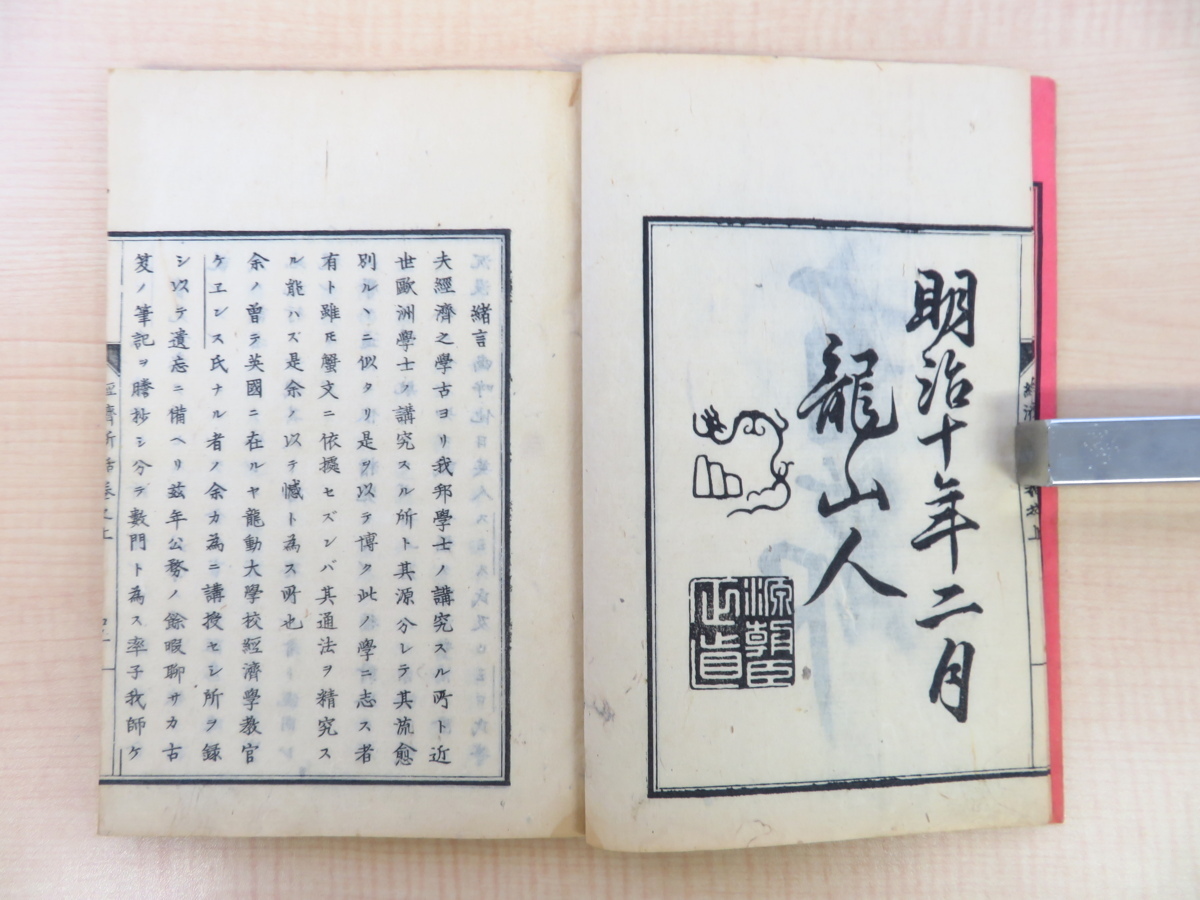 明治十年二月
龍山人
源朝臣
正直
緒言
夫經濟之學古ヨリ我邦學士ノ講究スル所ト近
世歐洲學士ノ講究スル所ト其源分レテ其流愈
別ルヽニ似タリ是ヲ以テ博ク此ノ學ニ志ス者
有ト雖𪜈蟹文ニ依據セズンバ其通法ヲ精究ス
ル能ハズ是余ノ以テ憾ト為ス所也
余ノ曽テ英國ニ在ルヤ龍動大學校經濟學教官
ケエンス氏ナル者ノ余カ為ニ講授セシ所ヲ録
シ以テ遺忘ニ備ヘリ茲年公務ノ餘暇聊サカ古
笈ノ筆記ヲ謄抄シ分テ數門ト為ス率子我師ケ